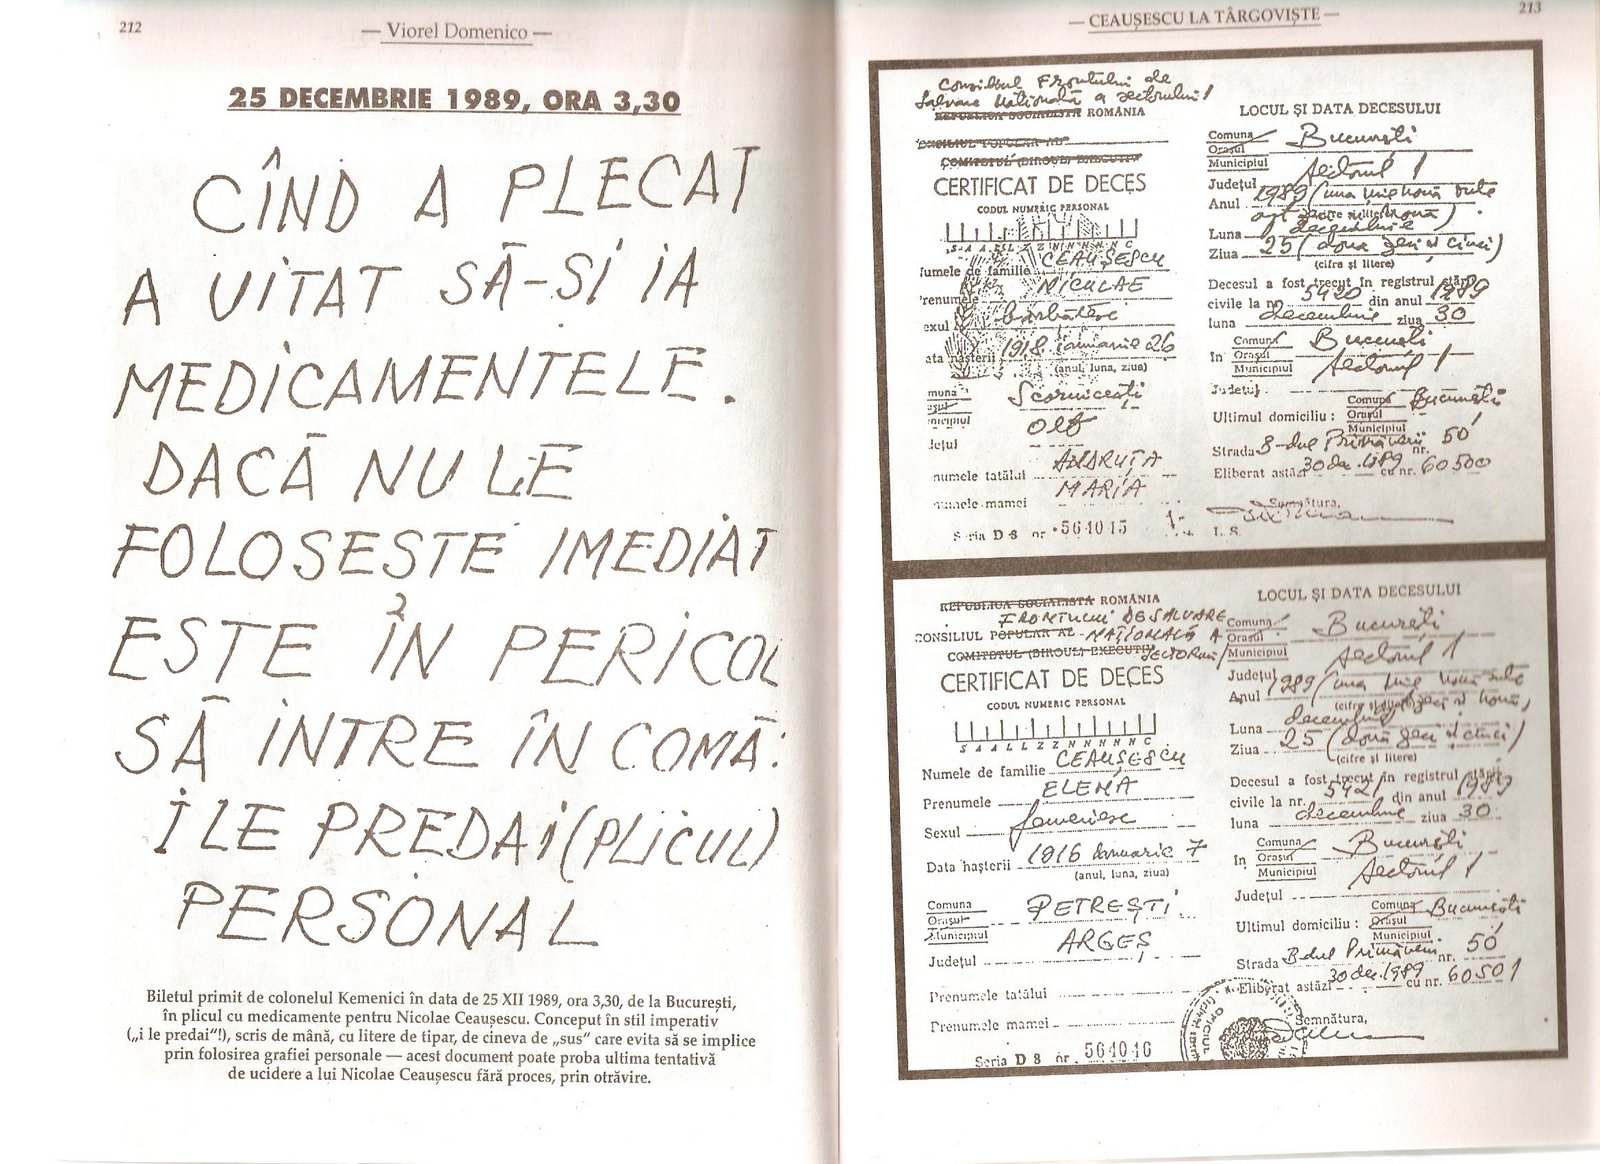 212
— Viorel Domenico —
25 DECEMBRIE 1989, ORA 3,30
CÎND A PLECAT
A UITAT SĂ-SI IA
MEDICAMENTELE.
DACĂ NU LE
FOLOSESTE IMEDIAT
ESTE ÎN PERICOL
SĂ INTRE ÎN COMĂ:
I LE PREDAI (PLICUL)
PERSONAL
Biletul primit de colonelul Kemenici în data de 25 XII 1989, ora 3,30, de la București,
în plicul cu medicamente pentru Nicolae Ceaușescu. Conceput în stil imperativ
(„i le predai"!), scris de mână, cu litere de tipar, de cineva de „sus" care evita să se implice
prin folosirea grafiei personale — acest document poate proba ultima tentativă
de ucidere a lui Nicolae Ceaușescu fără proces, prin otrăvire.
— CEAUȘESCU LA TÂRGOVIȘTE —
213
Consiliul Frontului de
Salvare Națională a sectorului 1
REPUBLICA SOCIALISTA ROMÂNIA
CONSILIUL POPULAR AL
COMITETUL (BIROUL) EXECUTIV
CERTIFICAT DE DECES
CODUL NUMERIC PERSONAL
S A A L L Z Z N N N N N C
numele de familie CEAUȘESCU
Prenumele NICULAE
Sexul bărbătesc
ata nașterii 1918 ianuarie 26
(anul, luna, ziua)
muna Scornicești
nicipiul
dețul Olt
numele tatălui ANDRUȚA
numele mamei MARIA
Seria D 8 nr 564015
LOCUL ȘI DATA DECESULUI
Comuna
Orașul București
Municipiul
Județul Sectorul 1
Anul 1989 (una mie nouă sute
opt zeci și nouă)
Luna decembrie
Ziua 25 (două zeci și cinci)
(cifre și litere)
Decesul a fost trecut în registrul stării
civile la nr. 5420 din anul 1989
luna decembrie ziua 30
Comuna București
în Orașul
Municipiul Sectorul 1
Județul
Comuna București
Ultimul domiciliu : Orașul
Municipiul
Strada B-dul Primăverii nr. 50
Eliberat astăzi 30 dec. 1989 cu nr. 60500
Semnătura,
L. S.
REPUBLICA SOCIALISTA ROMÂNIA
FRONTULUI DE SALVARE
CONSILIUL POPULAR AL NAȚIONALĂ A
COMITETUL (BIROUL) EXECUTIV SECTORULUI 1
CERTIFICAT DE DECES
CODUL NUMERIC PERSONAL
S A A L L Z Z N N N N N C
Numele de familie CEAUȘESCU
Prenumele ELENA
Sexul femeiesc
Data nașterii 1916 Ianuarie 7
(anul, luna, ziua)
Comuna
Orașul PETREȘTI
Municipiul
Județul ARGEȘ
Prenumele tatălui
Prenumele mamei
Seria D 8 nr. 564016
LOCUL ȘI DATA DECESULUI
Comuna
Orașul București
Municipiul Sectorul 1
Județul
Anul 1989 (una mie nouă sute
(cifre și litere) zeci și nouă)
Luna decembrie
Ziua 25 (două zeci și cinci)
(cifre și litere)
Decesul a fost trecut în registrul stării
civile la nr. 5421 din anul 1989
luna decembrie ziua 30
Comuna București
în Orașul
Municipiul Sectorul 1
Județul
Comuna București
Ultimul domiciliu : Orașul
Municipiul
Strada B-dul Primăverii nr. 50
Eliberat astăzi 30 dec. 1989 cu nr. 60501
Semnătura,